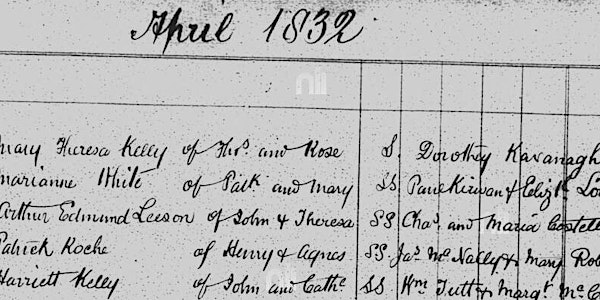 April 1832
Mary Theresa Kelly of Thos. and Rose S. Dorothy Kavanagh
Marianne White of Patk. and Mary SS. Kirwan & Elizth.
Arthur Edmund Leeson of John & Theresa SS Chas. and Maria Costell
Patrick Roche of Henry & Agnes SS. Jas. McNally & Mary Rob
Harriett Kelly of John and Cathe. SS. Wm. Tutt & Margt. Mc C